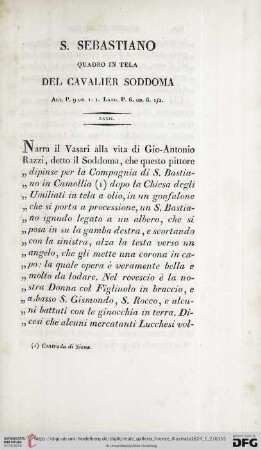 S. SEBASTIANO
QUADRO IN TELA
DEL CAVALIER SODDOMA
ALT. P. 9 on. 1. 1. LARG. P. 6. on. 6. 1/2.
Narra il Vasari alla vita di Gio-Antonio
Razzi, detto il Soddoma, che questo pittore
„ dipinse per la Compagnia di S. Bastia-
„ no in Camollia (1) dopo la Chiesa degli
„ Umiliati in tela a olio, in un gonfalone
„ che si porta a processione, un S. Bastia-
„ no ignudo legato a un albero, che si
„ posa in su la gamba destra, e scortando
„ con la sinistra, alza la testa verso un
„ angelo, che gli mette una corona in ca-
„ po: la quale opera è veramente bella e
„ molto da lodare. Nel rovescio è la no-
„ stra Donna col Figliuolo in braccio, e
„ a basso S. Gismondo, S. Rocco, e alcu-
„ ni battuti con le ginocchia in terra. Di-
„ cesi che alcuni mercatanti Lucchesi vol-
(1) Contrada di Siena.
UNIVERSITÄTS-
BIBLIOTHEK
HEIDELBERG
© Universitätsbibliothek Heidelberg
gefördert durch die
DFG